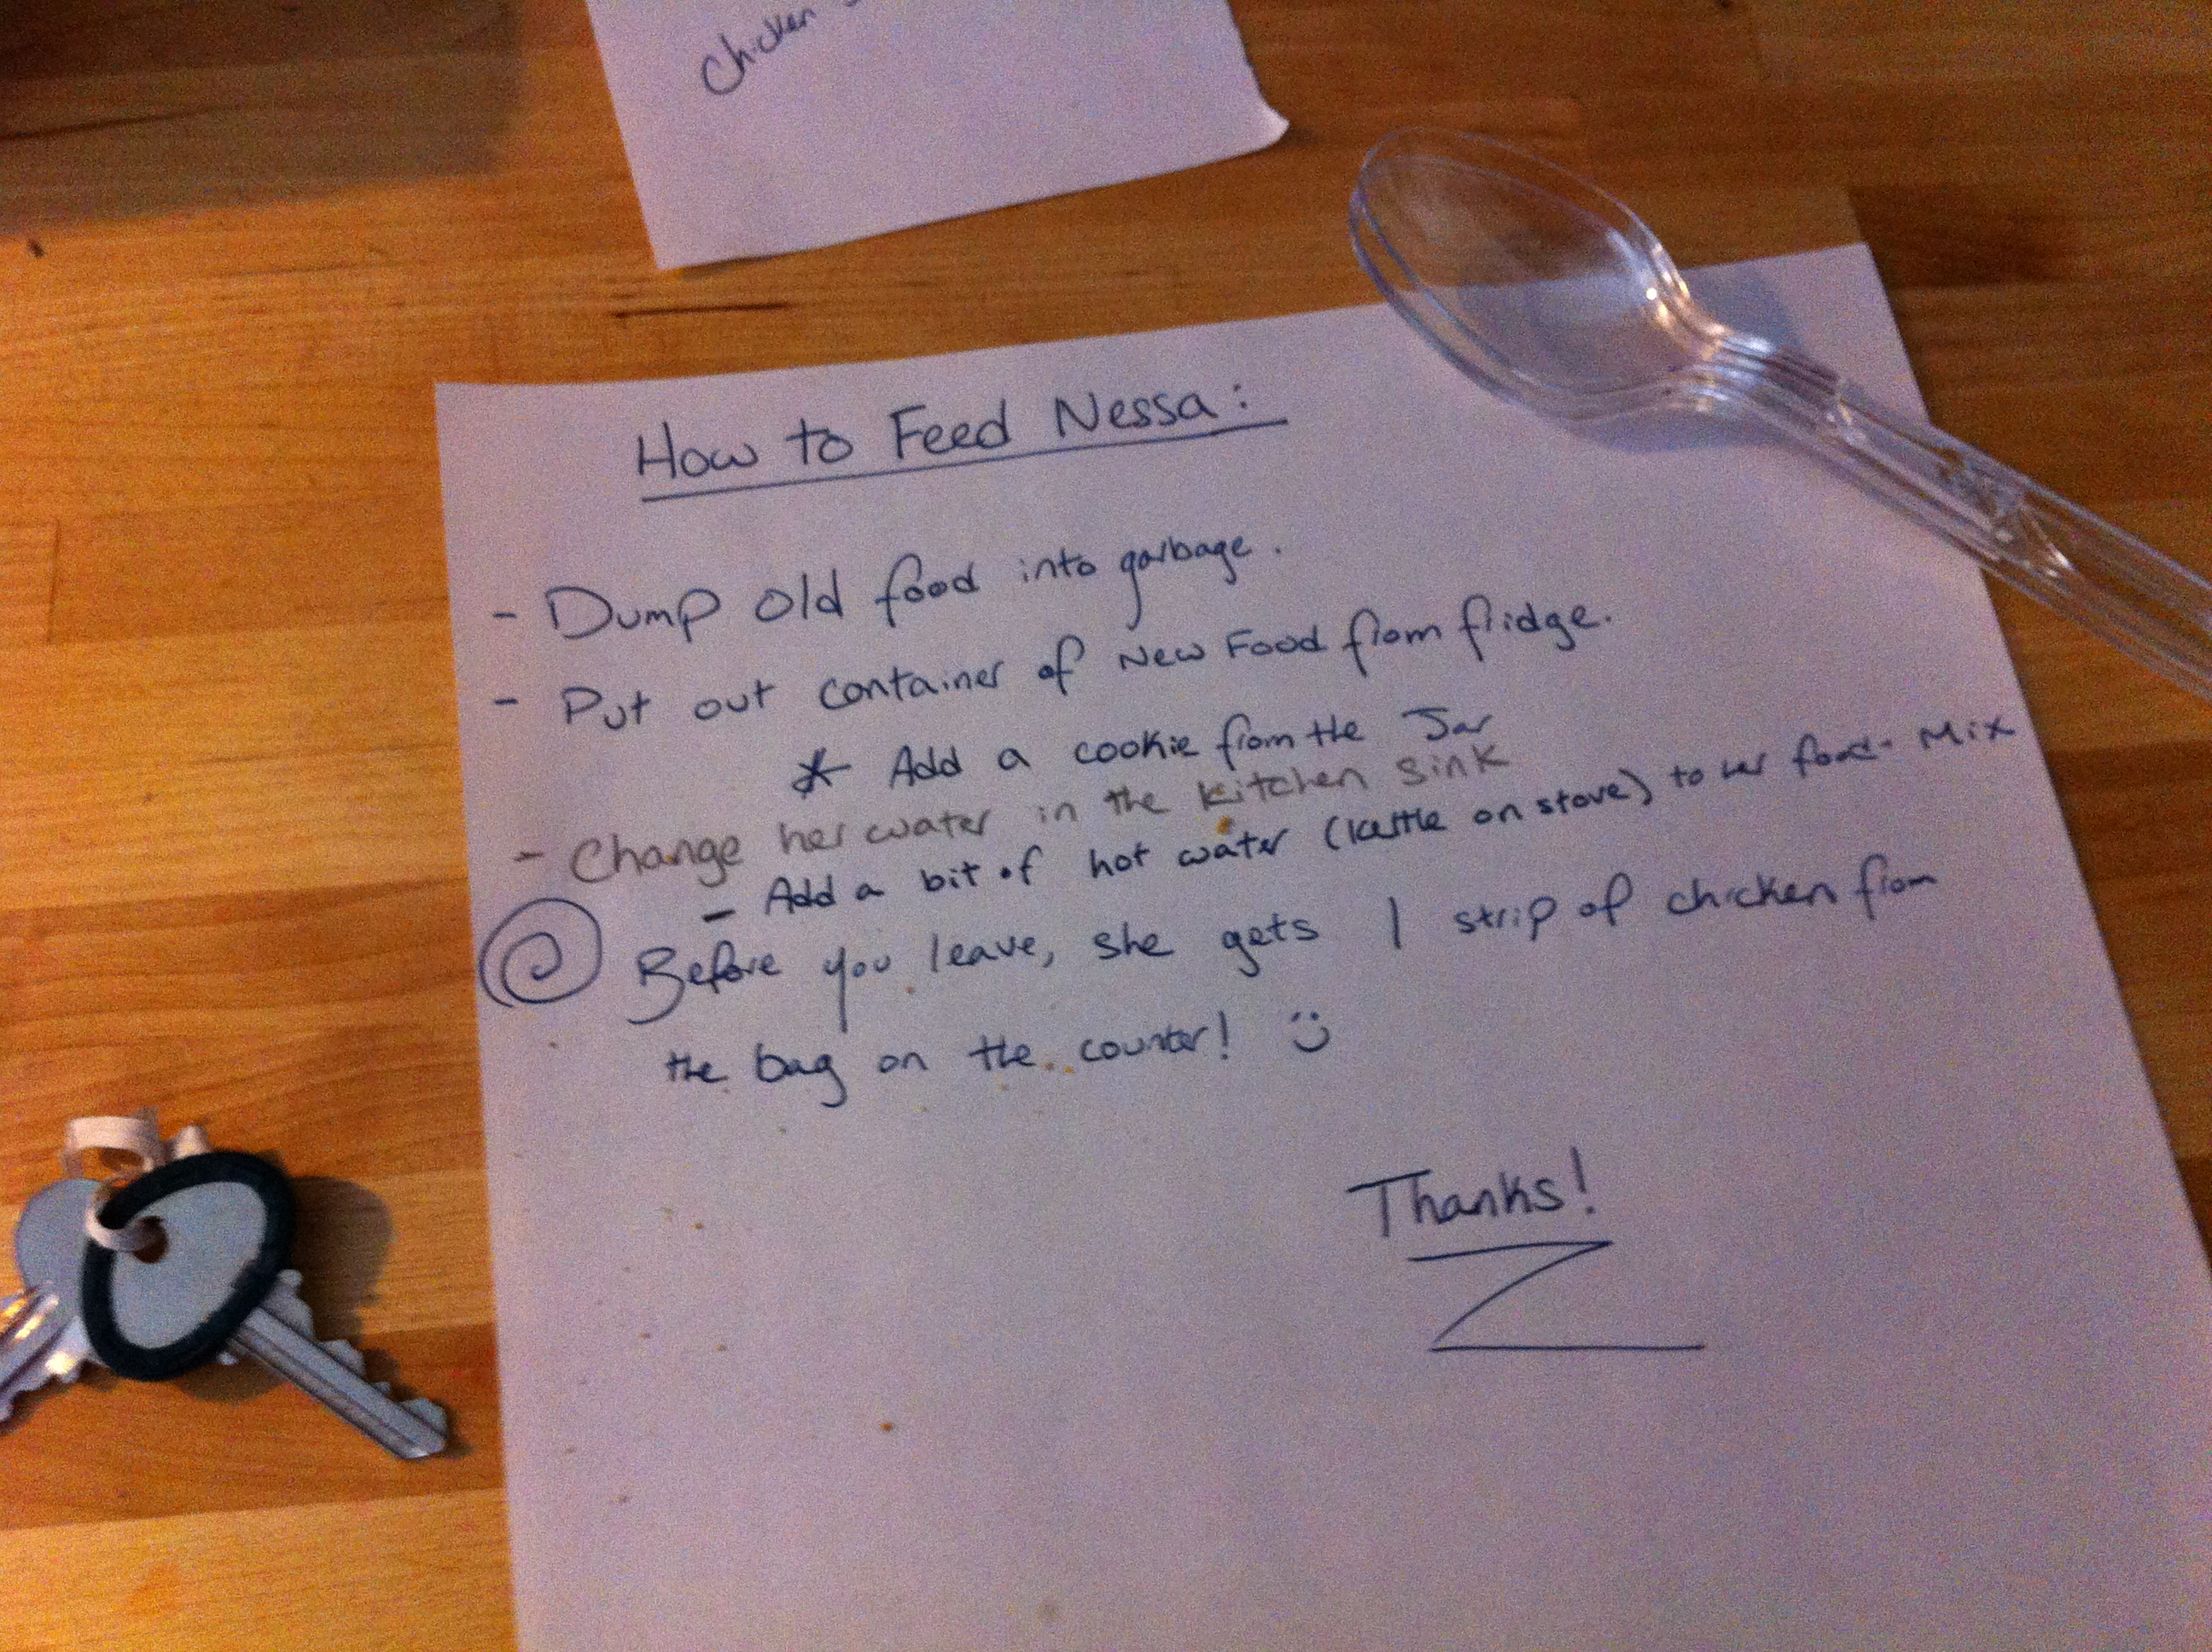 Chicken
How to Feed Nessa:
- Dump old food into garbage.
- Put out container of New Food from fridge.
* Add a cookie from the Jar
- Change her water in the kitchen sink
- Add a bit of hot water (kettle on stove) to her food - Mix
Before you leave, she gets 1 strip of chicken from
the bag on the counter! :)
Thanks!
Z